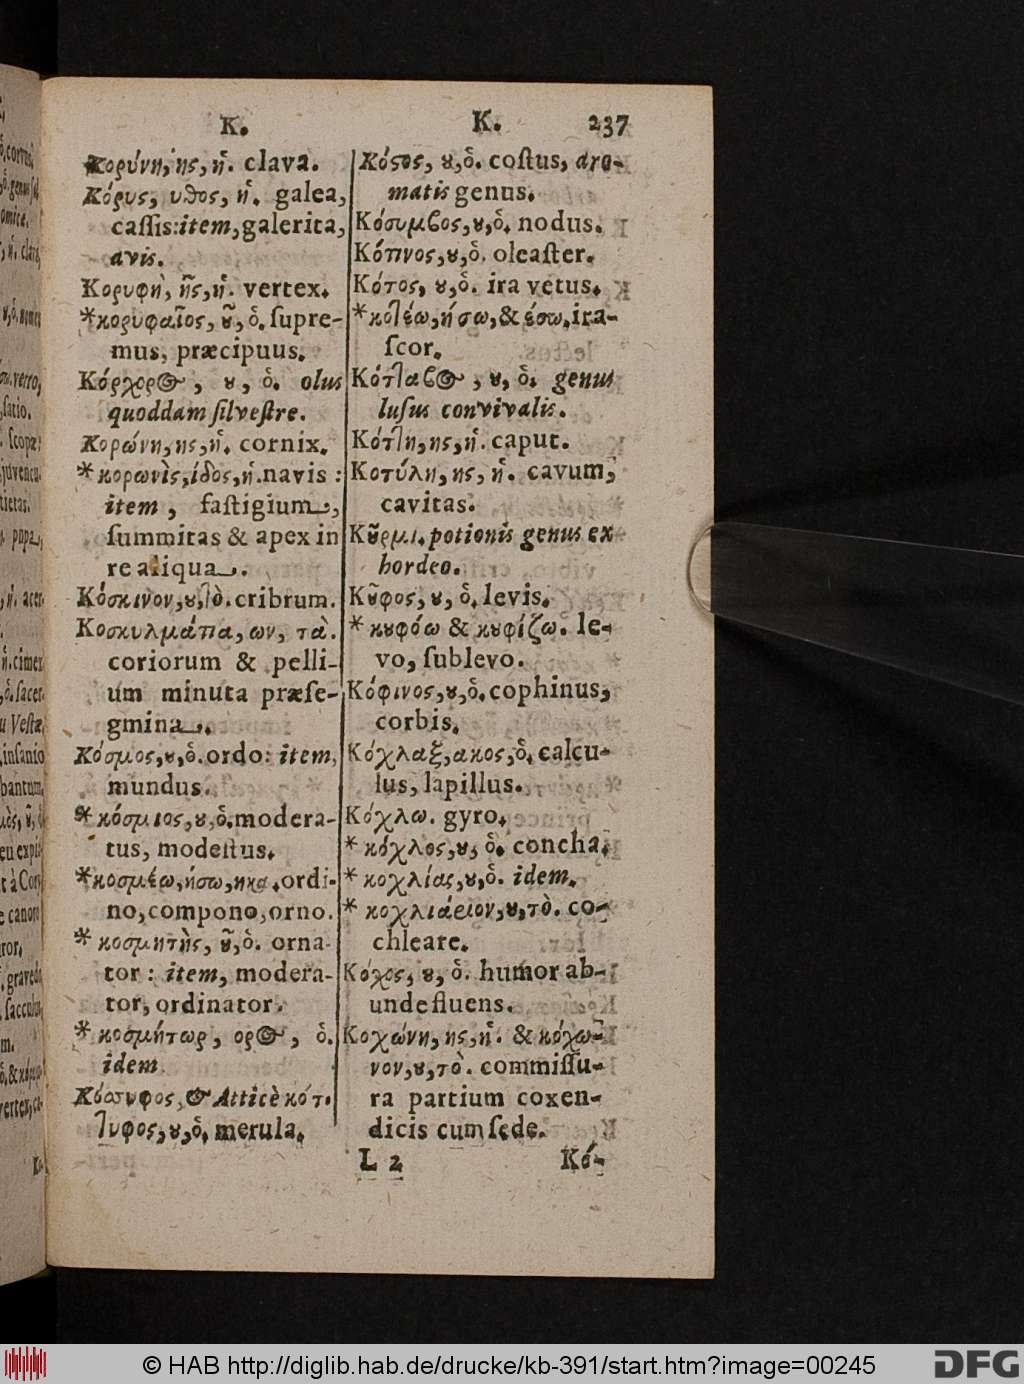 K.
Κορύνη, ης, ἡ. clava.
Κόρυς, υθος, ἡ. galea,
caſſis: item, galerita,
avis.
Κορυφὴ, ῆς, ἡ. vertex.
*κορυφαῖος, ȣ͂, ὁ. ſupre-
mus, præcipuus.
Κόρχορος, ȣ, ὁ. olus
quoddam ſilveſtre.
Κορώνη, ης, ἡ. cornix.
*κορωνὶς, ίδος, ἡ. navis:
item, faſtigium,
ſummitas & apex in
re aliqua.
Κόσκινον, ȣ, τὸ. cribrum.
Κοσκυλμάτια, ων, τὰ.
coriorum & pelli-
um minuta præſe-
gmina.
Κόσμος, ȣ, ὁ. ordo: item,
mundus.
*κόσμιος, ȣ, ὁ. modera-
tus, modeſtus.
*κοσμέω, ήσω, ηκα. ordi-
no, compono, orno.
*κοσμητὴς, ȣ͂, ὁ. orna-
tor: item, modera-
tor, ordinator.
*κοσμήτωρ, ορος, ὁ.
idem.
Κόσσυφος, & Atticè κότ-
τυφος, ȣ, ὁ. merula.
K. 237
Κόστος, ȣ, ὁ. coſtus, aro-
matis genus.
Κόσυμβος, ȣ, ὁ. nodus.
Κότινος, ȣ, ὁ. oleaſter.
Κότος, ȣ, ὁ. ira vetus.
*κοτέω, ήσω, & έσω. ira-
ſcor.
Κότταβος, ȣ, ὁ. genus
luſus convivalis.
Κόττη, ης, ἡ. caput.
Κοτύλη, ης, ἡ. cavum,
cavitas.
Κȣ͂ρμι. potionis genus ex
hordeo.
Κȣ͂φος, ȣ, ὁ. levis.
*κȣφόω & κȣφίζω. le-
vo, ſublevo.
Κόφινος, ȣ, ὁ. cophinus,
corbis.
Κόχλαξ, ακος, ὁ. calcu-
lus, lapillus.
Κόχλω. gyro.
*κόχλος, ȣ, ὁ. concha.
*κοχλίας, ȣ, ὁ. idem.
*κοχλιάριον, ȣ, τὸ. co-
chleare.
Κόχος, ȣ, ὁ. humor ab-
unde fluens.
Κοχώνη, ης, ἡ. & κόχω-
νον, ȣ, τὸ. commiſſu-
ra partium coxen-
dicis cum ſede.
L 2 Κό-
© HAB http://diglib.hab.de/drucke/kb-391/start.htm?image=00245
DFG